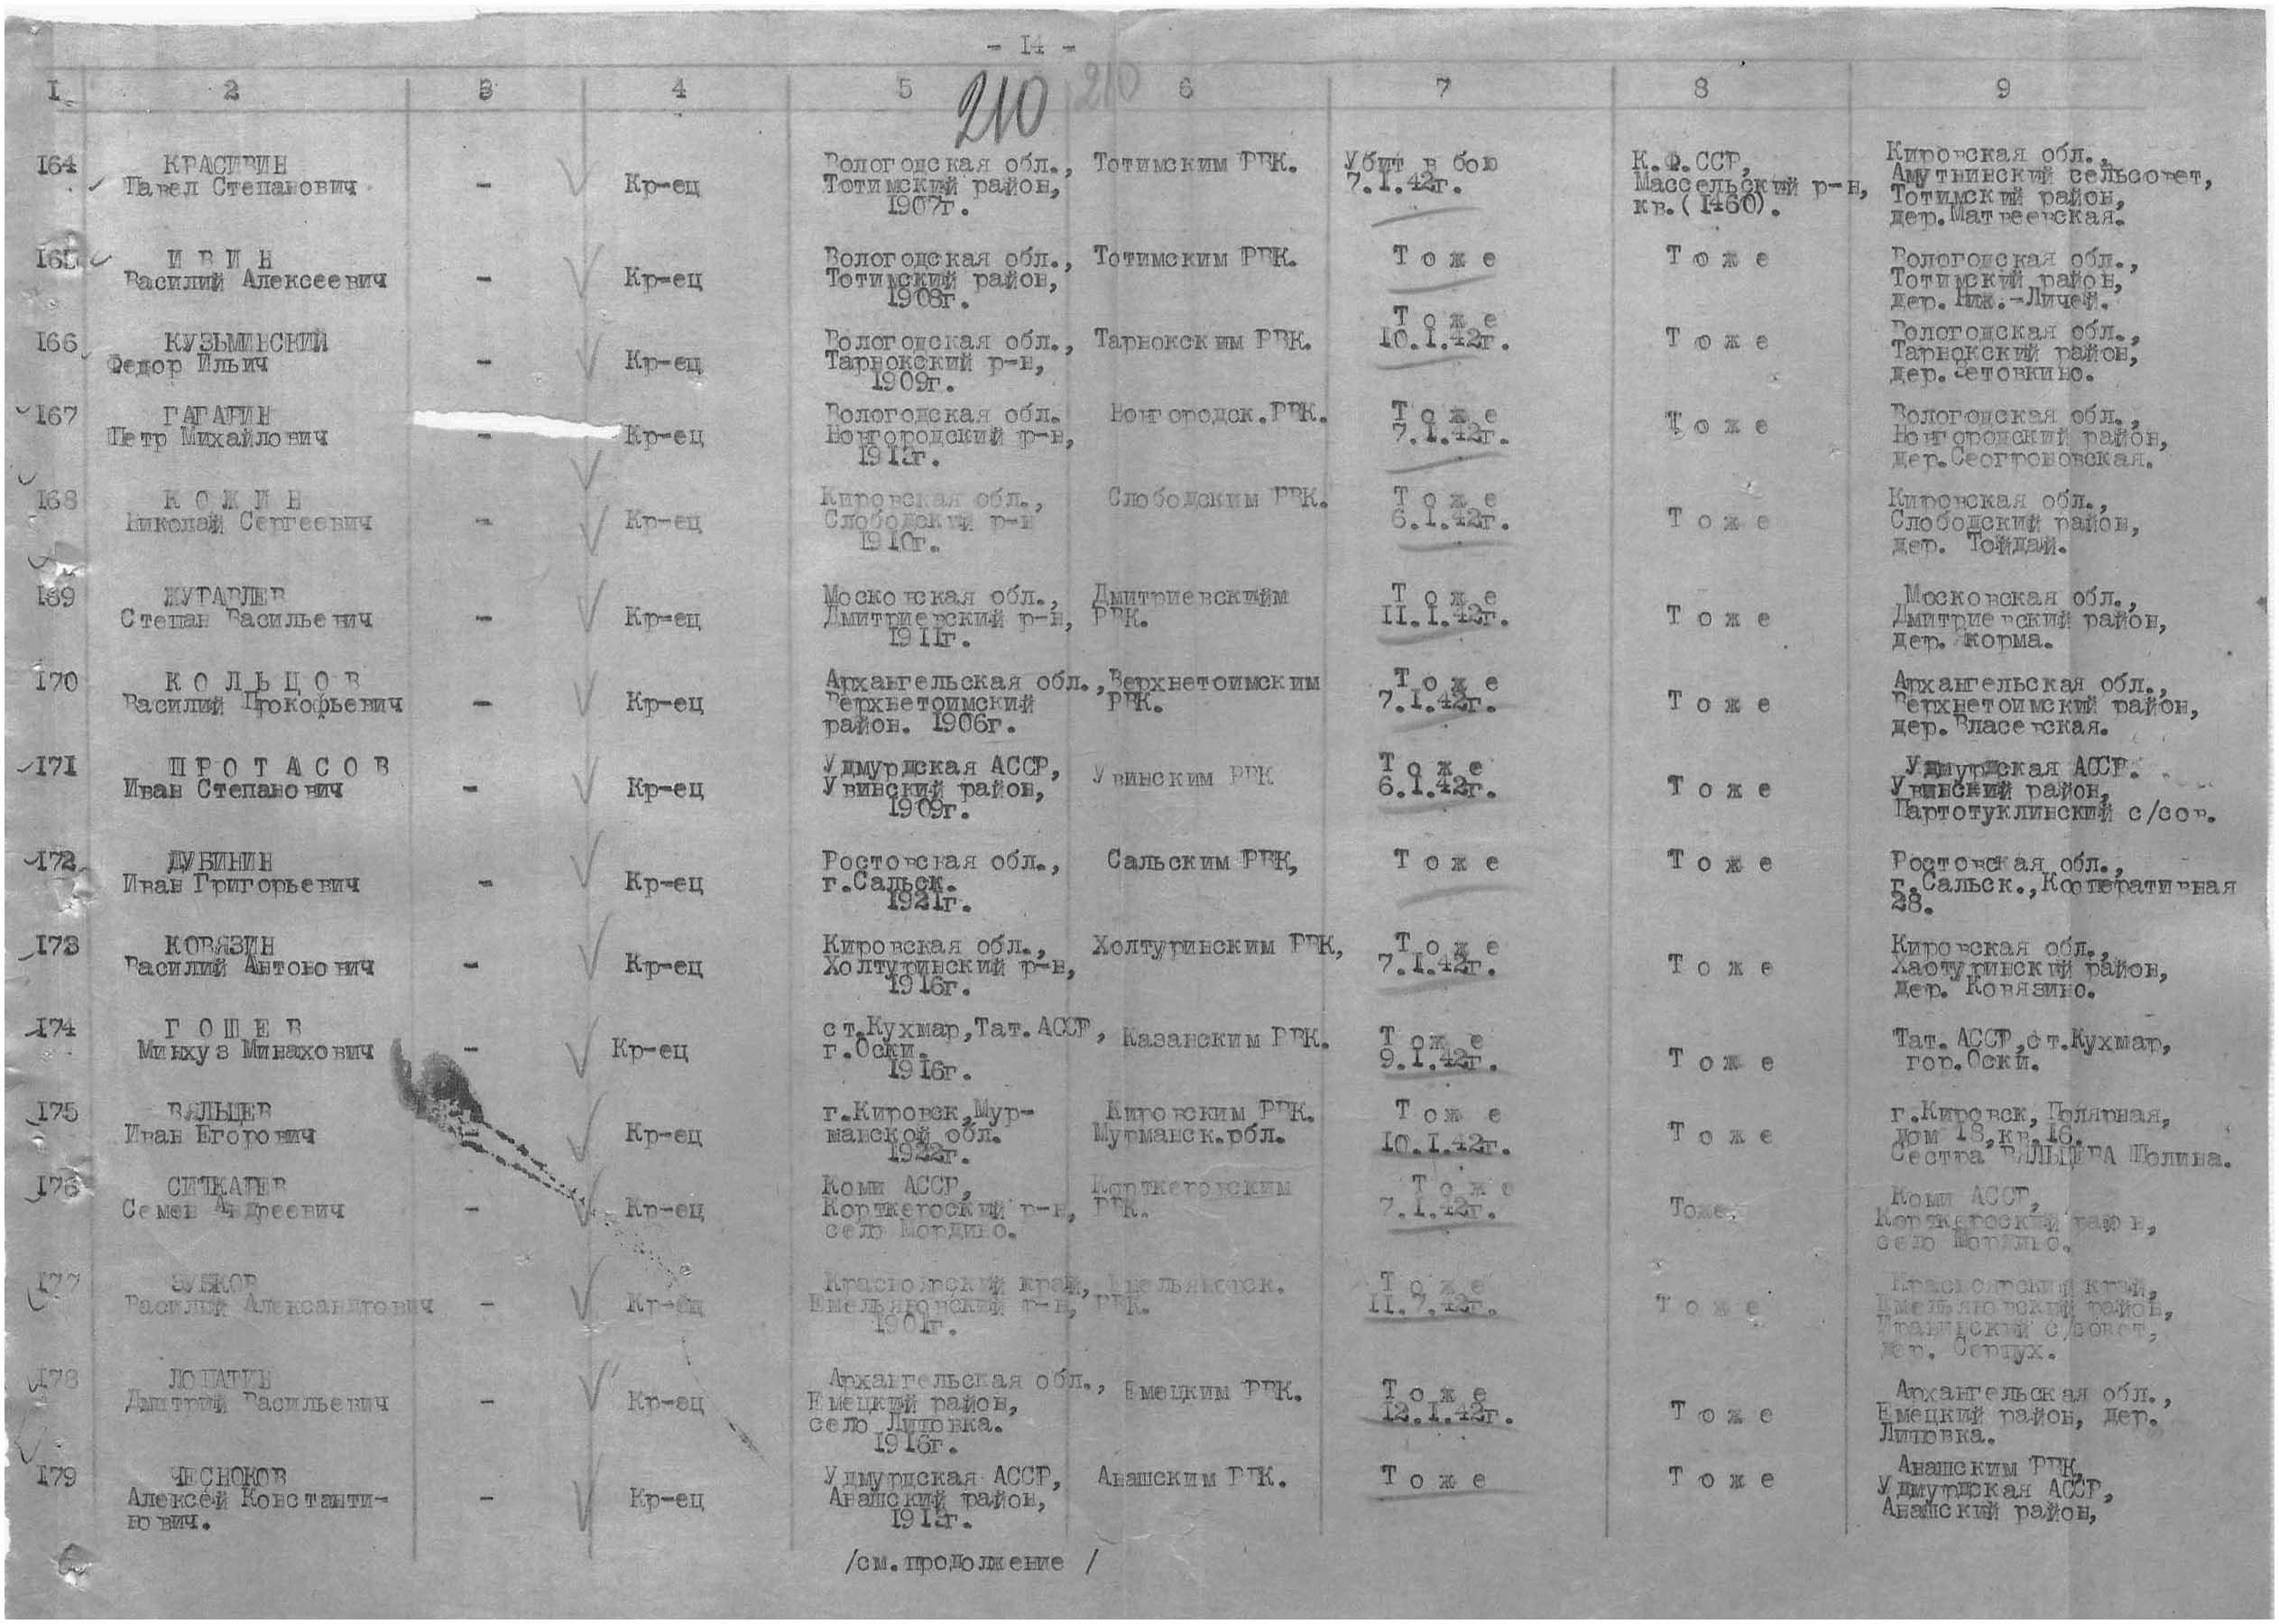 - 14 -
1 2 3 4 5 6 7 8 9
210 210
164 КРАСИВИН
Павел Степанович - Кр-ец
Вологодская обл.,
Тотимский район,
1907г.
Тотимским РВК.
Убит в бою
7.1.42г.
К.Ф.ССР,
Массельский р-н,
кв.(1460).
Кировская обл.,
Амутнинский сельсовет,
Тотимский район,
дер.Матвеевская.
165 И В И Н
Василий Алексеевич - Кр-ец
Вологодская обл.,
Тотимский район,
1908г.
Тотимским РВК.
Т о ж е
Т о ж е
Вологодская обл.,
Тотимский район,
дер. Ниж.-Личей.
166 КУЗЬМИНСКИЙ
Федор Ильич - Кр-ец
Вологодская обл.,
Тарнокский р-н,
1909г.
Тарнокским РВК.
Т о ж е
10.1.42г.
Т о ж е
Вологодская обл.,
Тарнокский район,
дер.
167 ГАГАРИН
Петр Михайлович - Кр-ец
Вологодская обл.
Новгородский р-н,
Новгородск.РВК.
Т о ж е
7.1.42г.
Т о ж е
Вологодская обл.,
Новгородский район,
дер.
168 К О Ж И Н
Николай Сергеевич - Кр-ец
Кировская обл.,
Слободский р-н
1910г.
Слободским РВК.
Т о ж е
6.1.42г.
Т о ж е
Кировская обл.,
Слободский район,
дер. Тойдай.
169 ЖУРАВЛЕВ
Степан Васильевич - Кр-ец
Московская обл.,
Дмитриевский р-н,
1911г.
Дмитриевскийм
РВК.
Т о ж е
11.1.42г.
Т о ж е
Московская обл.,
Дмитриевский район,
дер. Якорма.
170 К О Л Ь Ц О В
Василий Прокофьевич - Кр-ец
Архангельская обл.,
Верхнетоимский
район. 1906г.
Верхнетоимским
РВК.
Т о ж е
7.1.42г.
Т о ж е
Архангельская обл.,
Верхнетоимский район,
дер. Власевская.
171 П Р О Т А С О В
Иван Степанович - Кр-ец
Удмурдская АССР,
Увинский район,
1909г.
Увинским РВК
Т о ж е
6.1.42г.
Т о ж е
Удмурдская АССР.
Увинский район,
Партотуклинский с/сов.
172 ДУБИНИН
Иван Григорьевич - Кр-ец
Ростовская обл.,
г.Сальск.
1921г.
Сальским РВК,
Т о ж е
Т о ж е
Ростовская обл.,
г.Сальск.,Кооперативная
28.
173 КОВЯЗИН
Василий Антонович - Кр-ец
Кировская обл.,
Холтуринский р-н,
1916г.
Холтуринским РВК,
Т о ж е
7.1.42г.
Т о ж е
Кировская обл.,
Хаотуринский район,
дер. Ковязино.
174 Г О Ш Е В
Минхуз Минахович - Кр-ец
ст.Кухмар,Тат.АССР,
г.Оски.
1916г.
Казанским РВК.
Т о ж е
9.1.42г.
Т о ж е
Тат. АССР,ст.Кухмар,
гор.Оски.
175 ВЯЛЬЦЕВ
Иван Егорович - Кр-ец
г.Кировск,Мур-
манской обл.
1922г.
Кировским РВК.
Мурманск.обл.
Т о ж е
10.1.42г.
Т о ж е
г.Кировск, Полярная,
дом 18,кв.16.
Сестра ВЯЛЬЦЕВА Полина.
176
Семен Андреевич - Кр-ец
Коми АССР,
Корткеросский р-н,
село Мордино.
Корткеговским
РВК.
Т о ж е
7.1.42г.
Тоже.
Коми АССР,
Корткероский район,
село Мордино.
177 ЗУБКОВ
Василий Александрович - Кр-ец
Красноярский край,
Емельяновский р-н,
1901г.
Емельяновск.
РВК.
Т о ж е
Т о ж е
Красноярский край,
Емельяновский район,
с/совет,
дер.
178 ЛОПАТИН
Дмитрий Васильевич - Кр-ец
Архангельская обл.,
Емецкий район,
село Липовка.
1916г.
Емецким РВК.
Т о ж е
12.1.42г.
Т о ж е
Архангельская обл.,
Емецкий район, дер.
Липовка.
179 ЧЕСНОКОВ
Алексей Константи-
нович. - Кр-ец
Удмурдская АССР,
Анашский район,
Анашским РВК.
Т о ж е
Т о ж е
Анашским РВК,
Удмурдская АССР,
Анашский район,
/см.продолжение /